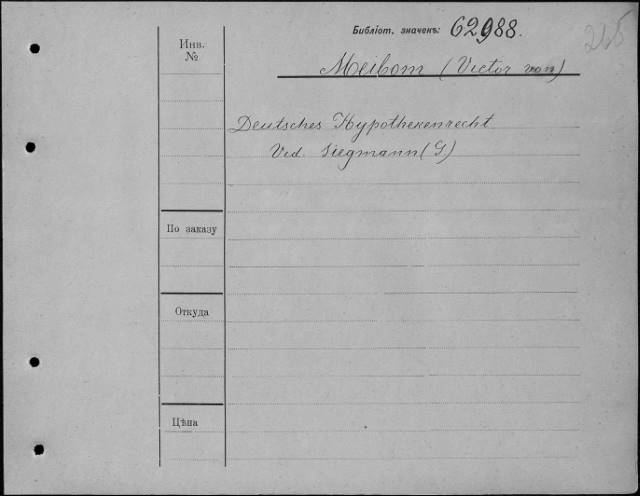 Библіот. значекъ: 62988.
265
Инв.
№
Meibom (Victor von)
Deutsches Hypothekenrecht
Vid. Siegmann (G.)
По заказу
Откуда
Цѣна